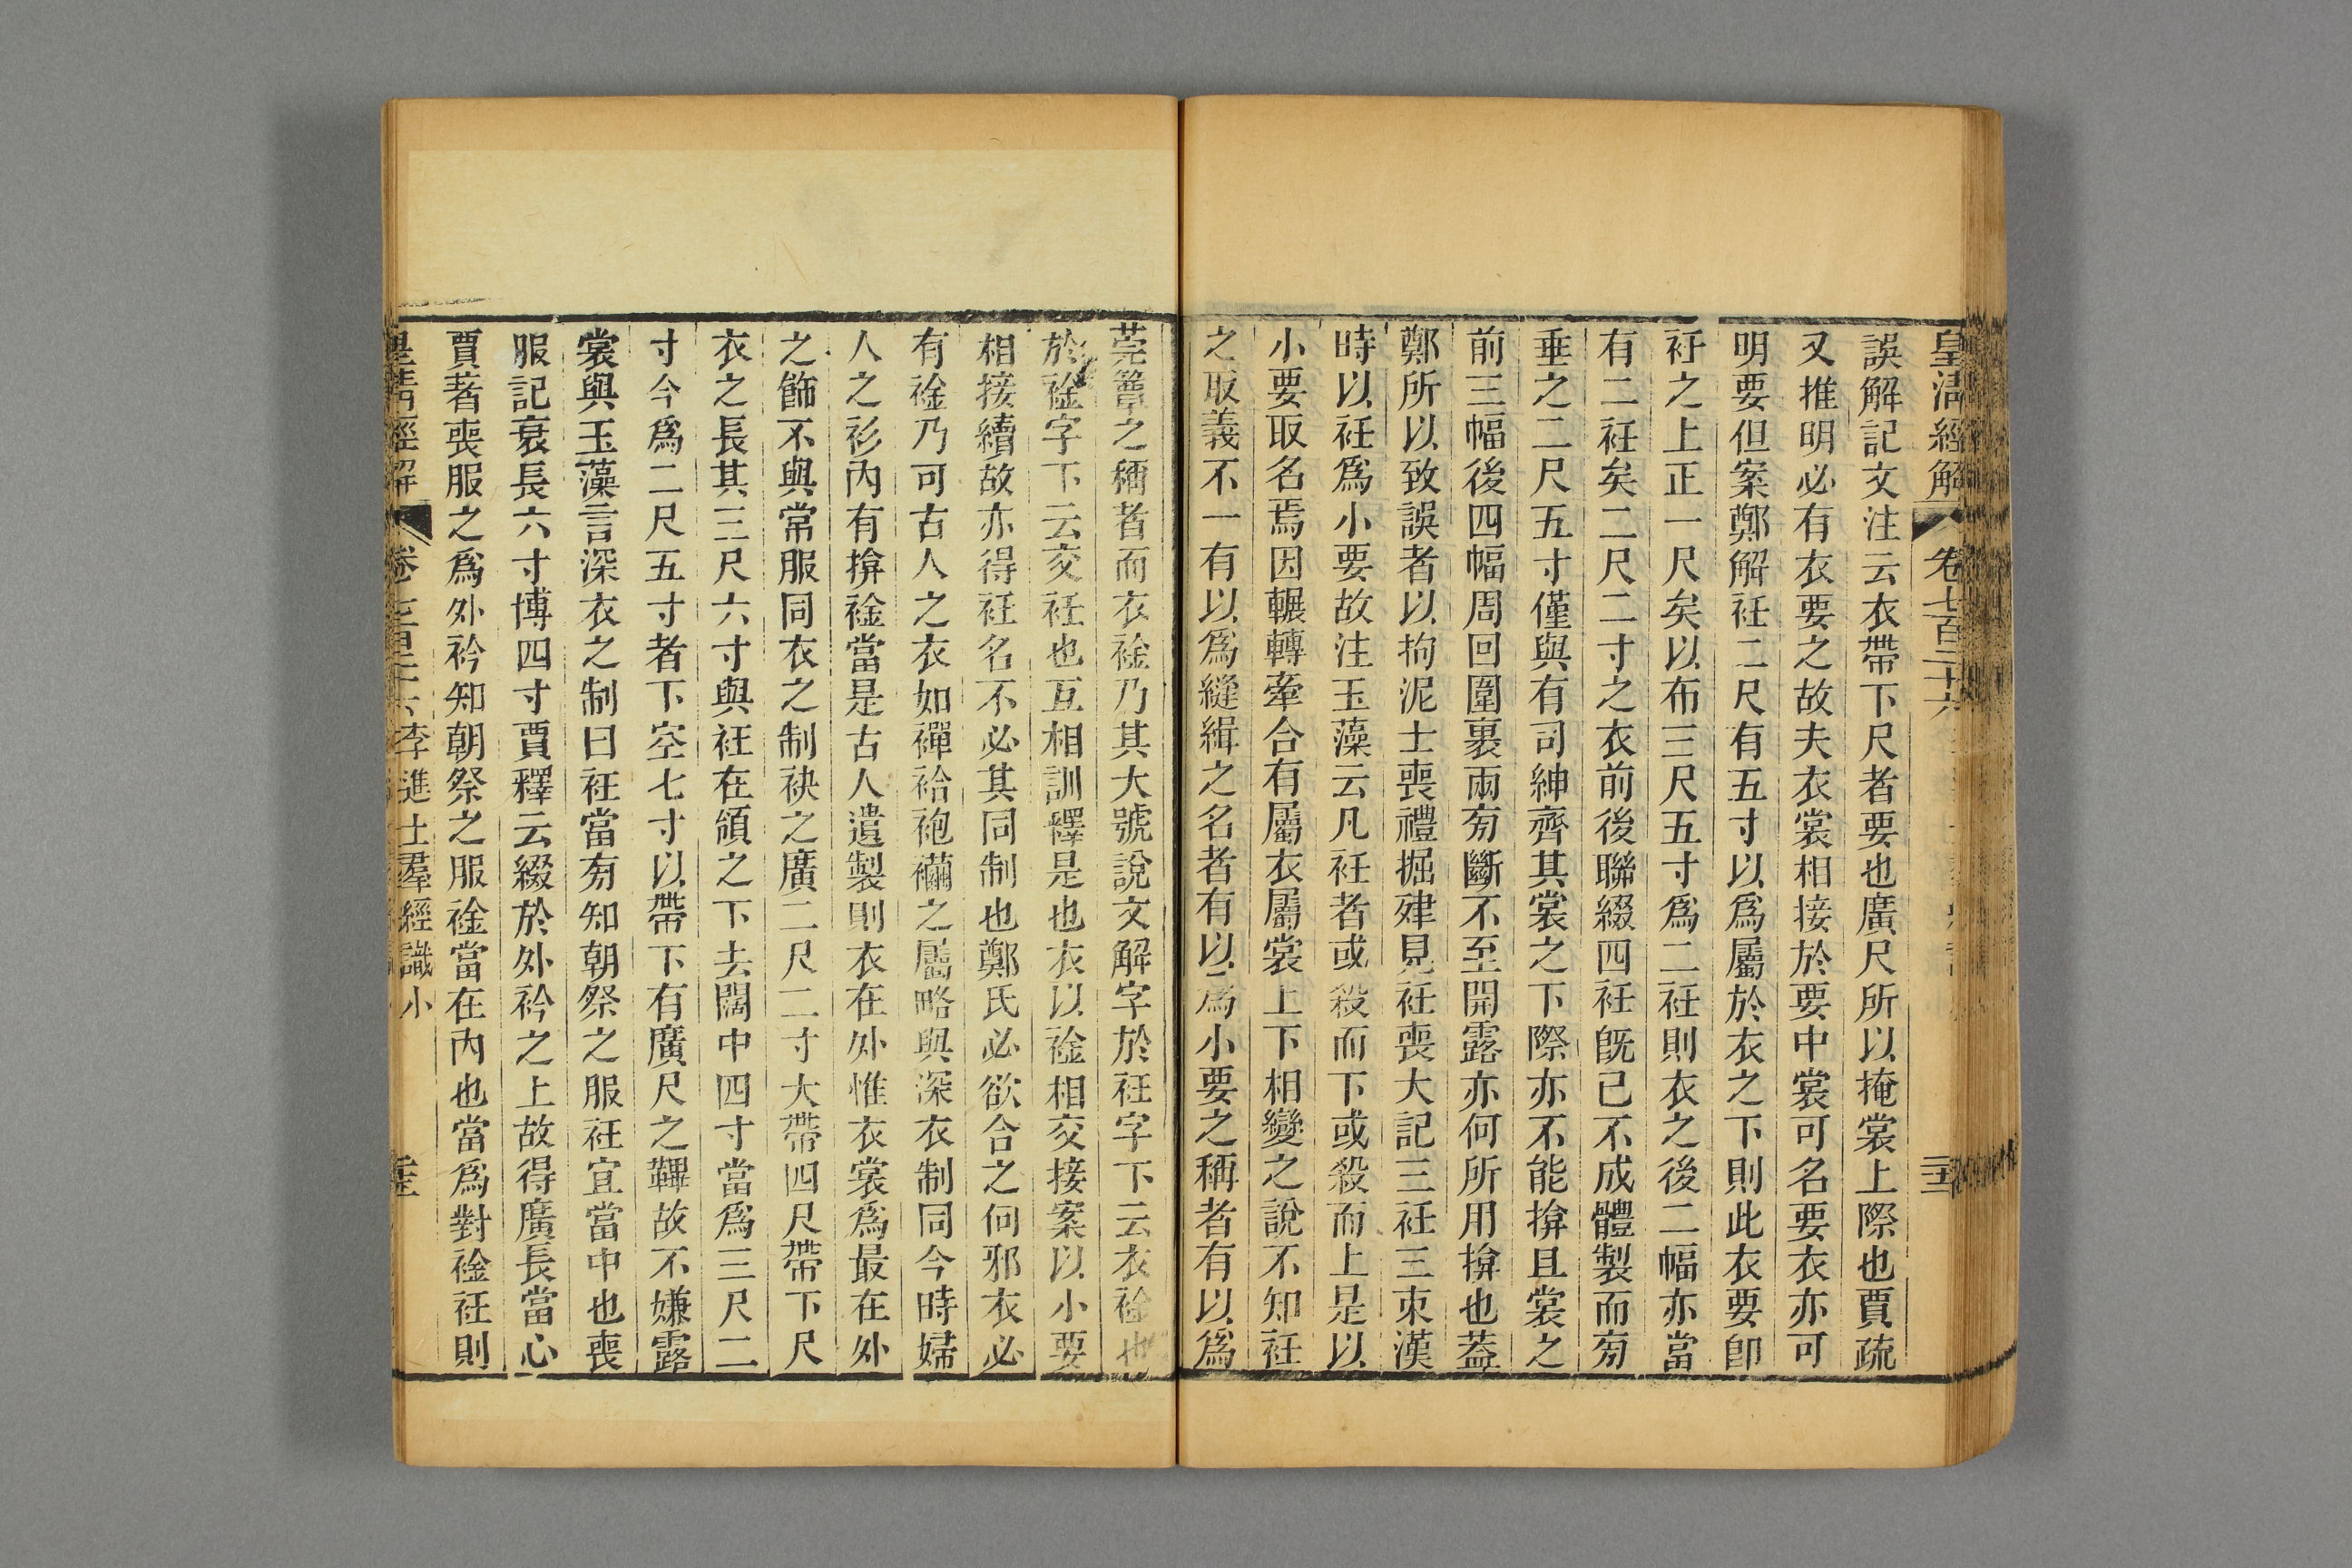 皇清經解 卷七百二十六
誤解記文注云衣帶下尺者要也廣尺所以掩裳上際也賈疏
又推明必有衣要之故夫衣裳相接於要中裳可名要衣亦可
明要但案鄭解衽二尺有五寸以爲屬於衣之下則此衣要卽
衽之上正一尺矣以布三尺五寸爲二衽則衣之後二幅亦當
有二衽矣二尺二寸之衣前後聯綴四衽旣已不成體製而旁
垂之二尺五寸僅與有司紳齊其裳之下際亦不能揜且裳之
前三幅後四幅周回圍裹兩旁斷不至開露亦何所用揜也蓋
鄭所以致誤者以拘泥士喪禮掘肂見衽喪大記三衽三束漢
時以衽爲小要故注玉藻云凡衽者或殺而下或殺而上是以
小要取名焉因輾轉牽合有屬衣屬裳上下相變之說不知衽
之取義不一有以爲縫緝之名者有以爲小要之稱者有以爲
莞簟之稱者而衣裣乃其大號說文解字於衽字下云衣裣也
於裣字下云交衽也互相訓釋是也衣以裣相交接案以小要
相接續故亦得衽名不必其同制也鄭氏必欲合之何邪衣必
有裣乃可古人之衣如襌袷袍襺之屬略與深衣制同今時婦
人之衫內有揜裣當是古人遺製則衣在外惟衣裳爲最在外
之飾不與常服同衣之制袂之廣二尺二寸大帶四尺帶下尺
衣之長其三尺六寸與衽在頷之下去闊中四寸當爲三尺二
寸今爲二尺五寸者下空七寸以帶下有廣尺之鞸故不嫌露
裳與玉藻言深衣之制曰衽當旁知朝祭之服衽宜當中也喪
服記衰長六寸博四寸賈釋云綴於外衿之上故得廣長當心
賈著喪服之爲外衿知朝祭之服裣當在內也當爲對裣衽則
皇清經解 卷 李進士羣經識小